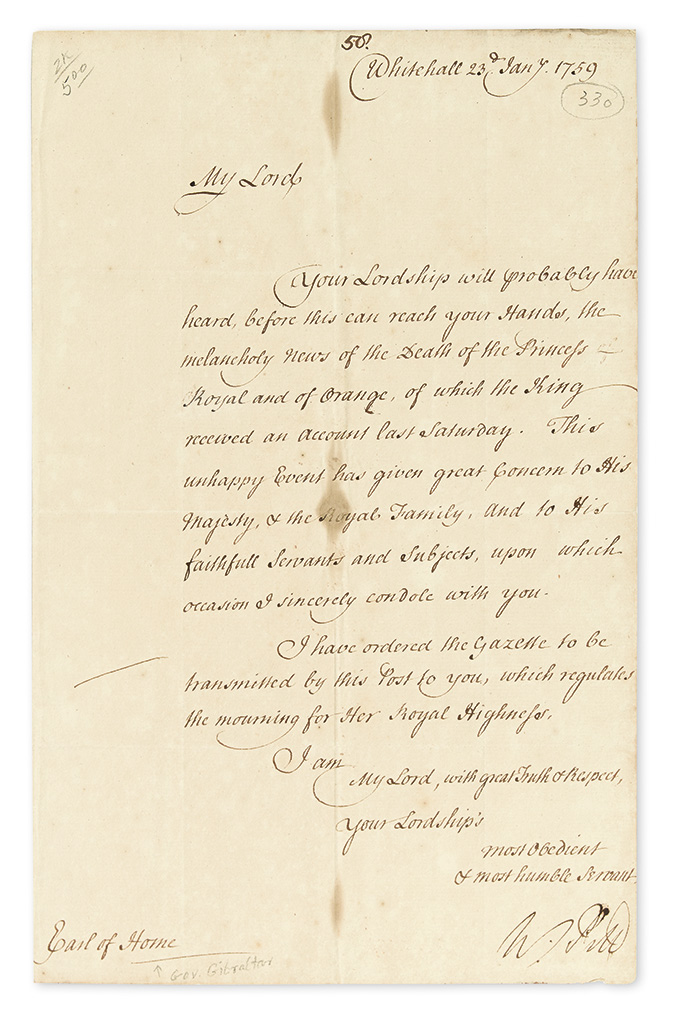 50.
2K
500
Whitehall 23.d Jan.y 1759
330
My Lord
Your Lordship will probably have
heard, before this can reach your Hands, the
melancholy News of the Death of the Princess
Royal and of Orange, of which the King
received an Account last Saturday. This
unhappy Event has given great Concern to His
Majesty, & the Royal Family, And to His
faithfull Servants and Subjects, upon which
occasion I sincerely condole with you.
I have ordered the Gazette to be
transmitted by this Post to you, which regulates
the mourning for Her Royal Highness.
I am
My Lord, with great Truth & Respect,
Your Lordship's
most Obedient
& most humble Servant,
W. Pitt
Earl of Home
↑ Gov. Gibraltar